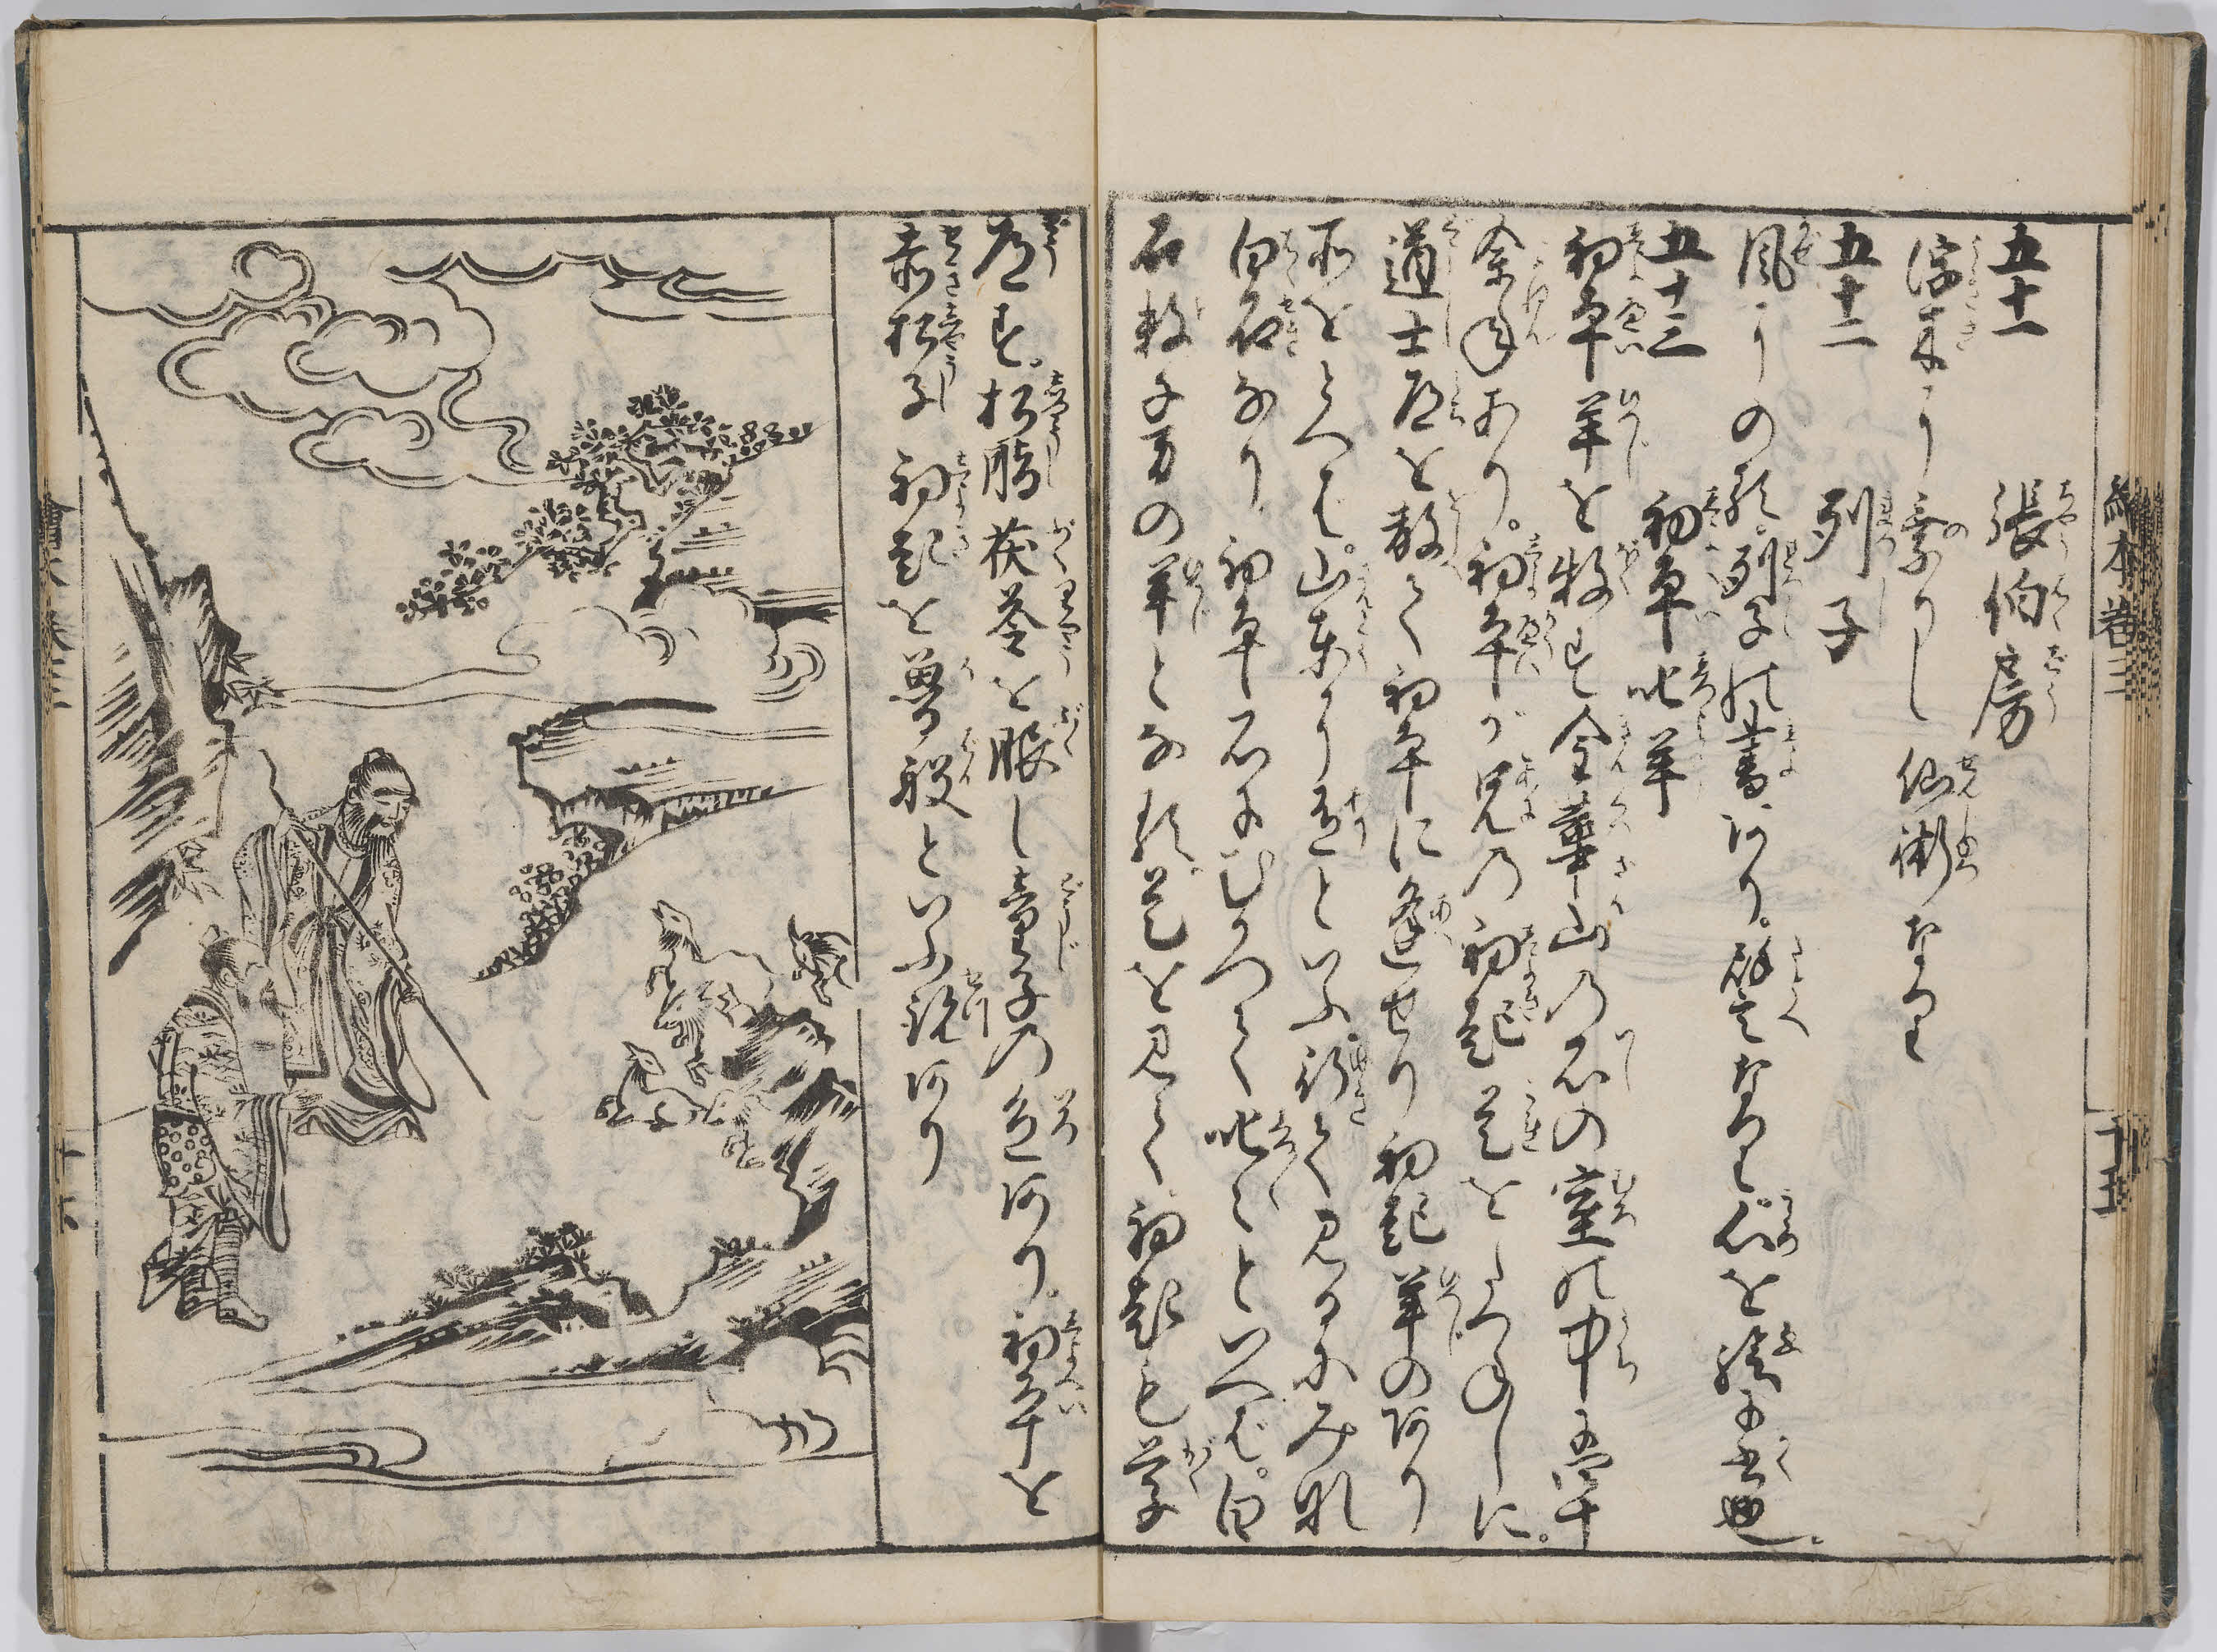 繪本卷三
十五
五十一
張伯房
浮木にのりし仙術なり
五十二
列子
風にのる列子の書にあり譬なり心を
五十三
初平叱羊
初平羊を牧す金華山の石の室の中に四十
余年あり。初平が兄の初起是をたづねしに。
道士道を教て初平に逢せり初起羊のあり
所をとへば。山東に有といふ行て見るにみな
白石なり初平石にむかつて叱々といへば。白
石数千万の羊となる是を見て初起も学
道す。松脂茯苓を服し童子の色あり。初平を
赤松子初起を魯班といふ説あり